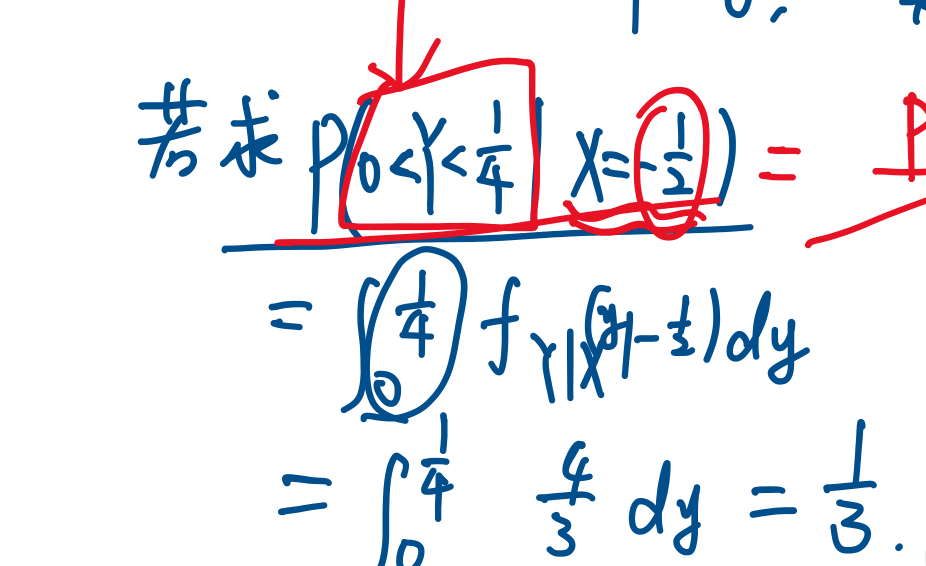 若求 P(0<Y<1/4 | X=-1/2) = P
= ∫₀^{1/4} f_{Y|X}(y|-1/2)dy
= ∫₀^{1/4} 4/3 dy = 1/3.